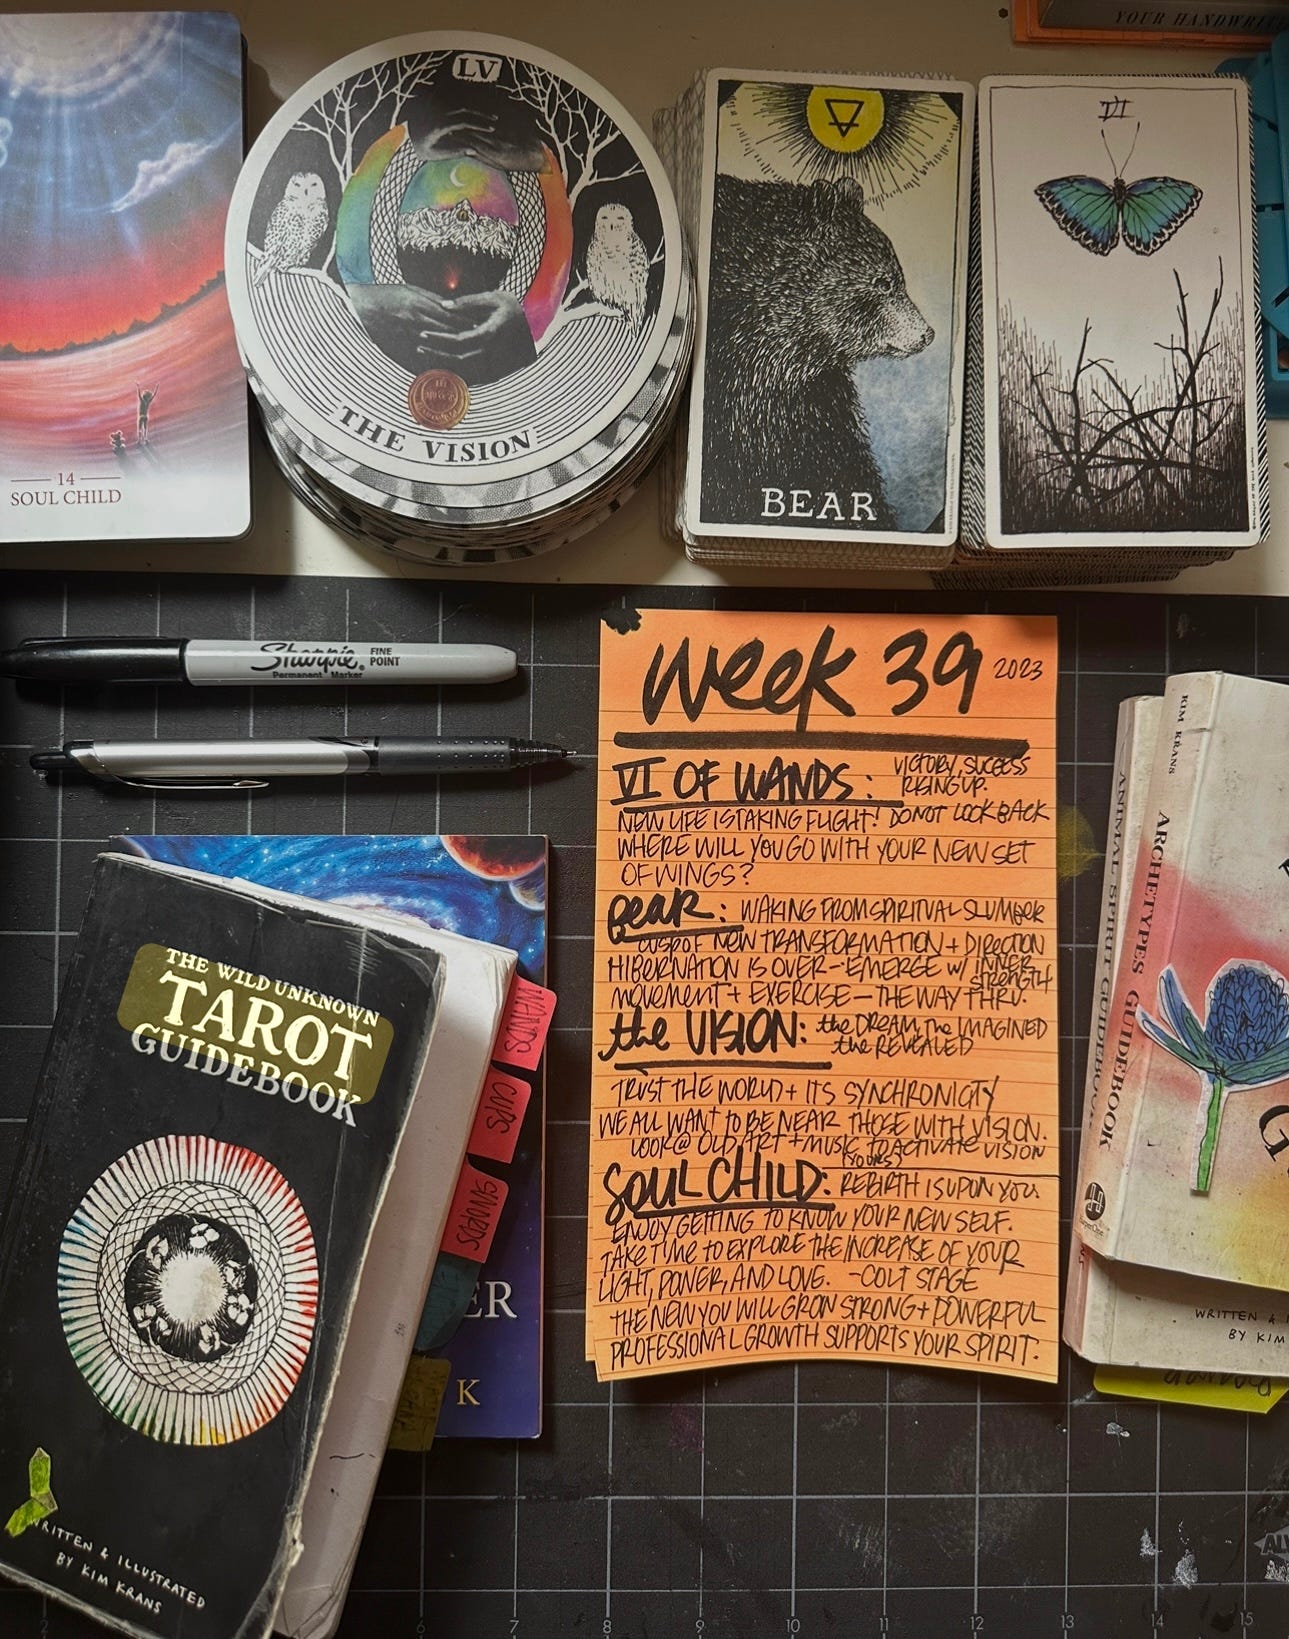 YOUR HANDWRITI
LV
THE VISION
14
SOUL CHILD
BEAR
VI
Sharpie.
FINE
POINT
Permanent Marker
Week 39 2023
VI OF WANDS: VICTORY, SUCCESS
RISING UP.
NEW LIFE IS TAKING FLIGHT! DO NOT LOOK BACK
WHERE WILL YOU GO WITH YOUR NEW SET
OF WINGS?
BEAR: WAKING FROM SPIRITUAL SLUMBER
CUSP OF NEW TRANSFORMATION + DIRECTION
HIBERNATION IS OVER - EMERGE W/ INNER
STRENGTH
MOVEMENT + EXERCISE - THE WAY THRU.
the VISION: the DREAM, the IMAGINED
the REVEALED
TRUST THE WORLD + ITS SYNCHRONICITY
WE ALL WANT TO BE NEAR THOSE WITH VISION.
LOOK @ OLD ART + MUSIC TO ACTIVATE VISION
(YOURS)
SOUL CHILD: REBIRTH IS UPON YOU.
ENJOY GETTING TO KNOW YOUR NEW SELF.
TAKE TIME TO EXPLORE THE INCREASE OF YOUR
LIGHT, POWER, AND LOVE. -COLT STAGE
THE NEW YOU WILL GROW STRONG + POWERFUL
PROFESSIONAL GROWTH SUPPORTS YOUR SPIRIT.
THE WILD UNKNOWN
TAROT
GUIDEBOOK
WRITTEN & ILLUSTRATED
BY KIM KRANS
WANDS
CUPS
SWORDS
ER
K
KIM KRANS
ARCHETYPES GUIDEBOOK
ANIMAL SPIRIT GUIDEBOOK
G
WRITTEN & I
BY KIM
2
6
7
8
9
10
11
12
13
14
15